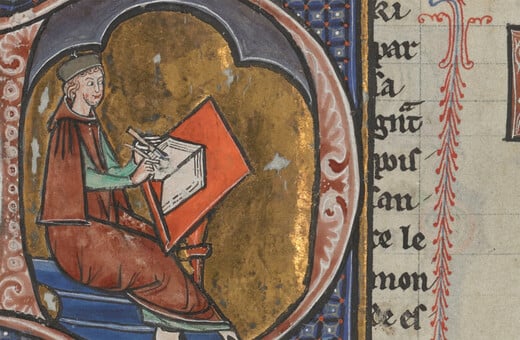 ki
par
sa
gᵃnt
pois
san
ce le
mon
de es